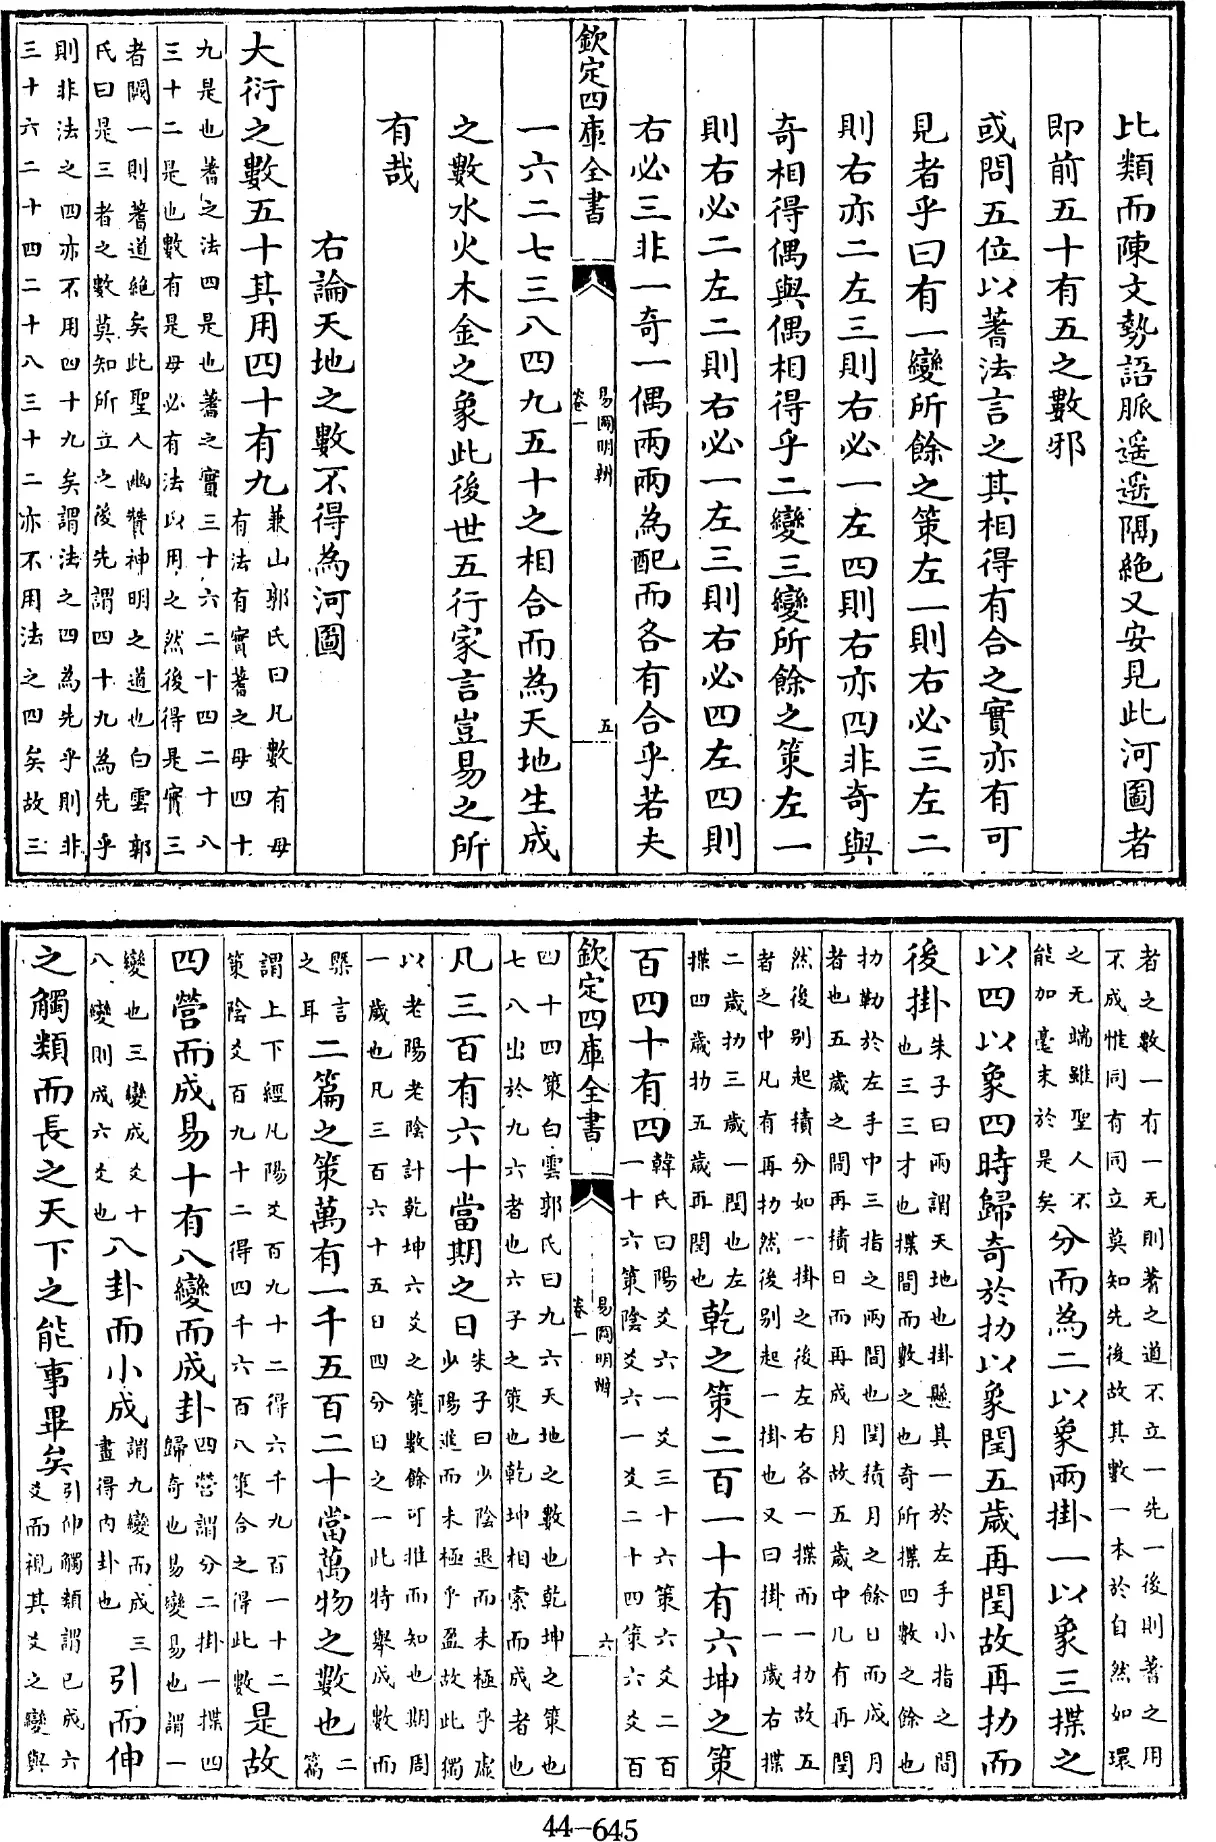 比類而陳文勢語脈遥遥隔絶又安見此河圖者
即前五十有五之數邪
或問五位以蓍法言之其相得有合之實亦有可
見者乎曰有一變所餘之策左一則右必三左二
則右亦二左三則右必一左四則右亦四非奇與
奇相得偶與偶相得乎二變三變所餘之策左一
則右必二左二則右必一左三則右必四左四則
右必三非一奇一偶兩兩為配而各有合乎若夫
欽定四庫全書
易圖明辨
卷一
五
一六二七三八四九五十之相合而為天地生成
之數水火木金之象此後世五行家言豈易之所
有哉
右論天地之數不得為河圖
大衍之數五十其用四十有九
兼山郭氏曰凡數有母
有法有實蓍之母四十
九是也蓍之法四是也蓍之實三十六二十四二十八
三十二是也數有是母必有法以用之然後得是實三
者闕一則蓍道絶矣此聖人幽贊神明之道也白雲郭
氏曰是三者之數莫知所立之後先謂四十九為先乎
則非法之四亦不用四十九矣謂法之四為先乎則非
三十六二十四二十八三十二亦不用法之四矣故三
者之數一有一无則蓍之道不立一先一後則蓍之用
不成惟同有同立莫知先後故其數一本於自然如環
之无端雖聖人不
能加毫末於是矣
分而為二以象兩掛一以象三揲之
以四以象四時歸奇於扐以象閏五歲再閏故再扐而
後掛
朱子曰兩謂天地也掛懸其一於左手小指之間
也三三才也揲間而數之也奇所揲四數之餘也
扐勒於左手中三指之兩間也閏積月之餘日而成月
者也五歲之間再積日而再成月故五歲中凡有再閏
然後别起積分如一掛之後左右各一揲而一扐故五
者之中凡有再扐然後别起一掛也又曰掛一歲右揲
二歲扐三歲一閏也左
揲四歲扐五歲再閏也
乾之策二百一十有六坤之策
百四十有四
韓氏曰陽爻六一爻三十六策六爻二百
一十六策陰爻六一爻二十四策六爻百
欽定四庫全書
易圖明辨
卷一
六
四十四策白雲郭氏曰九六天地之數也乾坤之策也
七八出於九六者也六子之策也乾坤相索而成者也
凡三百有六十當期之日
朱子曰少陰退而未極乎虛
少陽進而未極乎盈故此獨
以老陽老陰計乾坤六爻之策數餘可推而知也期周
一歲也凡三百六十五日四分日之一此特舉成數而
槩言
之耳
二篇之策萬有一千五百二十當萬物之數也
二
篇
謂上下經凡陽爻百九十二得六千九百一十二
策陰爻百九十二得四千六百八策合之得此數
是故
四營而成易十有八變而成卦
四營謂分二掛一揲四
歸奇也易變易也謂一
變也三變成爻十
八變則成六爻也
八卦而小成
謂九變而成三
畫得内卦也
引而伸
之觸類而長之天下之能事畢矣
引伸觸類謂已成六
爻而視其爻之變與
44-645